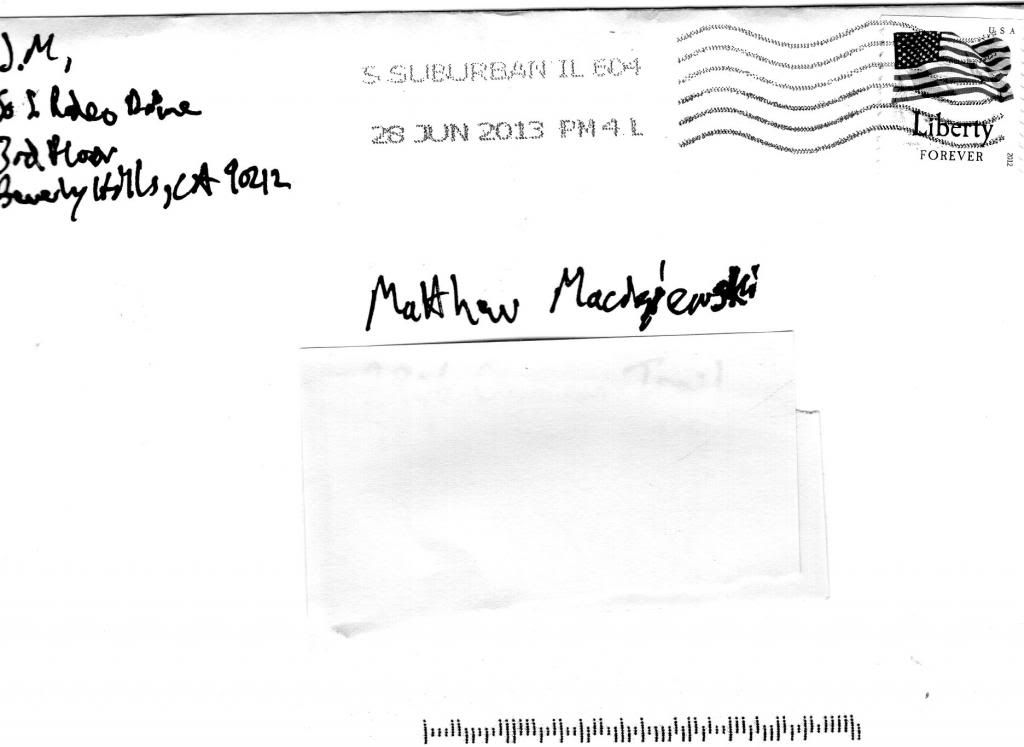 J.M,
Rodeo Drive
3rd Floor
Beverly Hills, CA 90212
S SUBURBAN IL 604
28 JUN 2013 PM 4 L
USA
Liberty
FOREVER
2012
Matthew Maciejewski